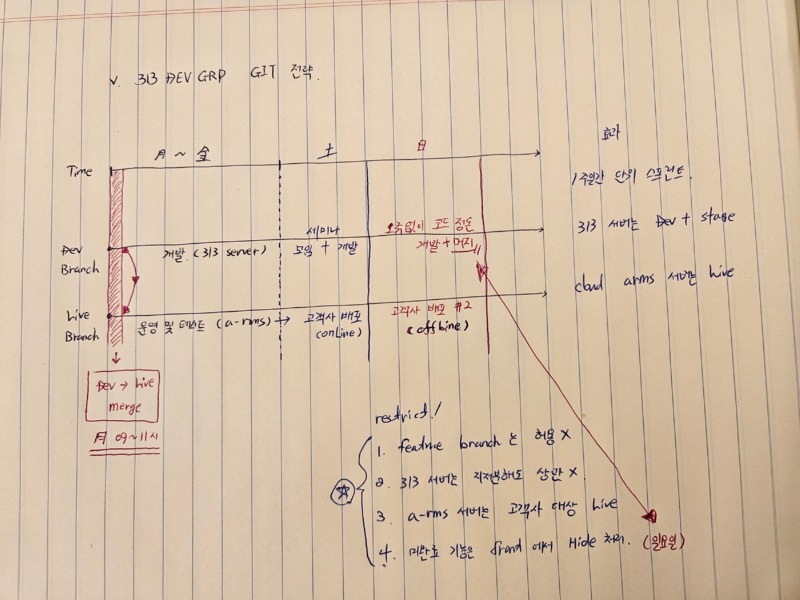 V. 313 DEV GRP GIT 전략.
月 ~ 金
土
日
효과
Time
1주일간 단위 스프린트.
세미나
모임 + 개발
오류없이 코드 정돈
개발 + 머지
313 서버는 Dev + stage
Dev
Branch
개발 (313 server)
cloud arms 서버는 Live
Live
Branch
운영 및 테스트 (a-rms) →
고객사 배포
(online)
고객사 배포 #2
(offline)
Dev → Live
merge
月 09~11시
restrict!
1. feature branch 는 허용 X
2. 313 서버는 지저분해도 상관 X.
3. a-rms 서버는 고객사 대상 Live
4. 미완료 기능은 front 에서 Hide 처리. (일요일)